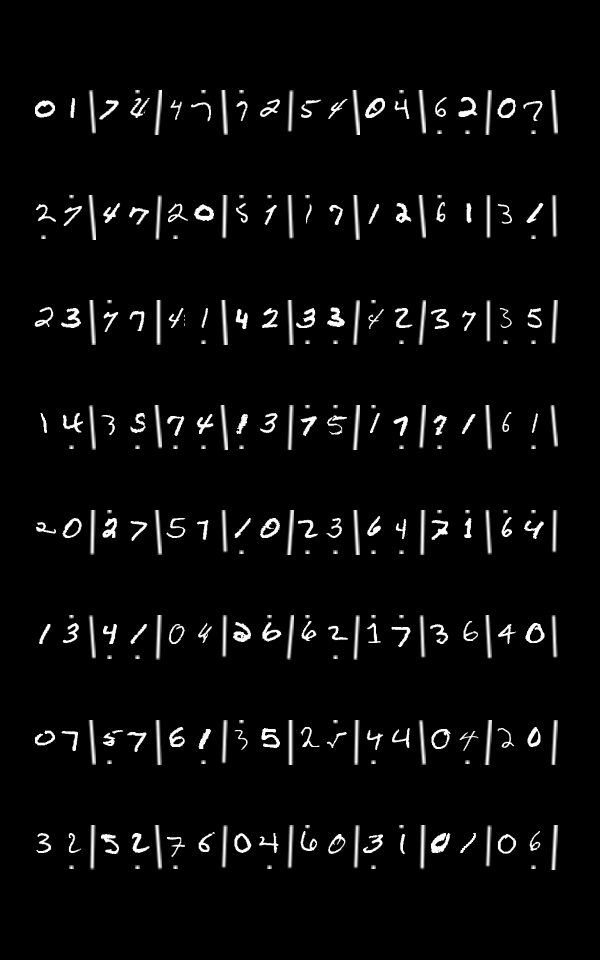 0 1 | 7 4 | 4 7 | 7 2 | 5 4 | 0 4 | 6 2 | 0 7 |
2 7 | 4 7 | 2 0 | 5 1 | 1 7 | 1 2 | 6 1 | 3 1 |
2 3 | 7 7 | 4 1 | 4 2 | 3 3 | 4 2 | 3 7 | 3 5 |
1 4 | 3 5 | 7 4 | 1 3 | 7 5 | 1 7 | 7 1 | 6 1 |
2 0 | 2 7 | 5 7 | 1 0 | 2 3 | 6 4 | 7 1 | 6 4 |
1 3 | 4 1 | 0 4 | 2 6 | 6 2 | 1 7 | 3 6 | 4 0 |
0 7 | 5 7 | 6 1 | 3 5 | 2 5 | 4 4 | 0 4 | 2 0 |
3 2 | 5 2 | 7 6 | 0 4 | 6 0 | 3 1 | 0 1 | 0 6 |